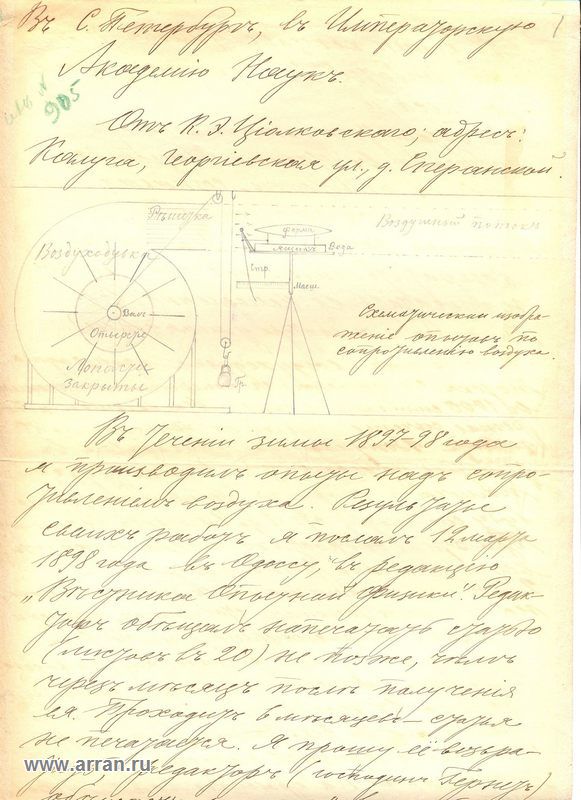 Въ С. Петербургъ, въ Императорскую
Академію Наукъ.
905
Отъ К. Э. Ціолковскаго; адресъ:
Калуга, Георгіевская ул., д. Сперанской.
Воздуходувка
Валъ
Отверст
Лопасти
закрыты
Гр.
Форма
Ящикъ
Вода
Стр.
Масшт.
Воздушный потокъ
Схематическое изобра-
женіе опытовъ по
сопротивленію воздуха.
Въ теченіи зимы 1897-98 года
я производилъ опыты надъ сопро-
тивленіемъ воздуха. Результаты
своихъ работъ я послалъ 12 марта
1898 года въ Одессу, въ редакцію
„Вѣстника Опытной Физики". Редак-
торъ обѣщалъ напечатать статью
(листовъ въ 20) не позже, чѣмъ
черезъ мѣсяцъ послѣ полученія
ея. Проходитъ 6 мѣсяцевъ – статья
не печатается. Я прошу её возвра-
редакторъ (господинъ Гернетъ)
www.arran.ru